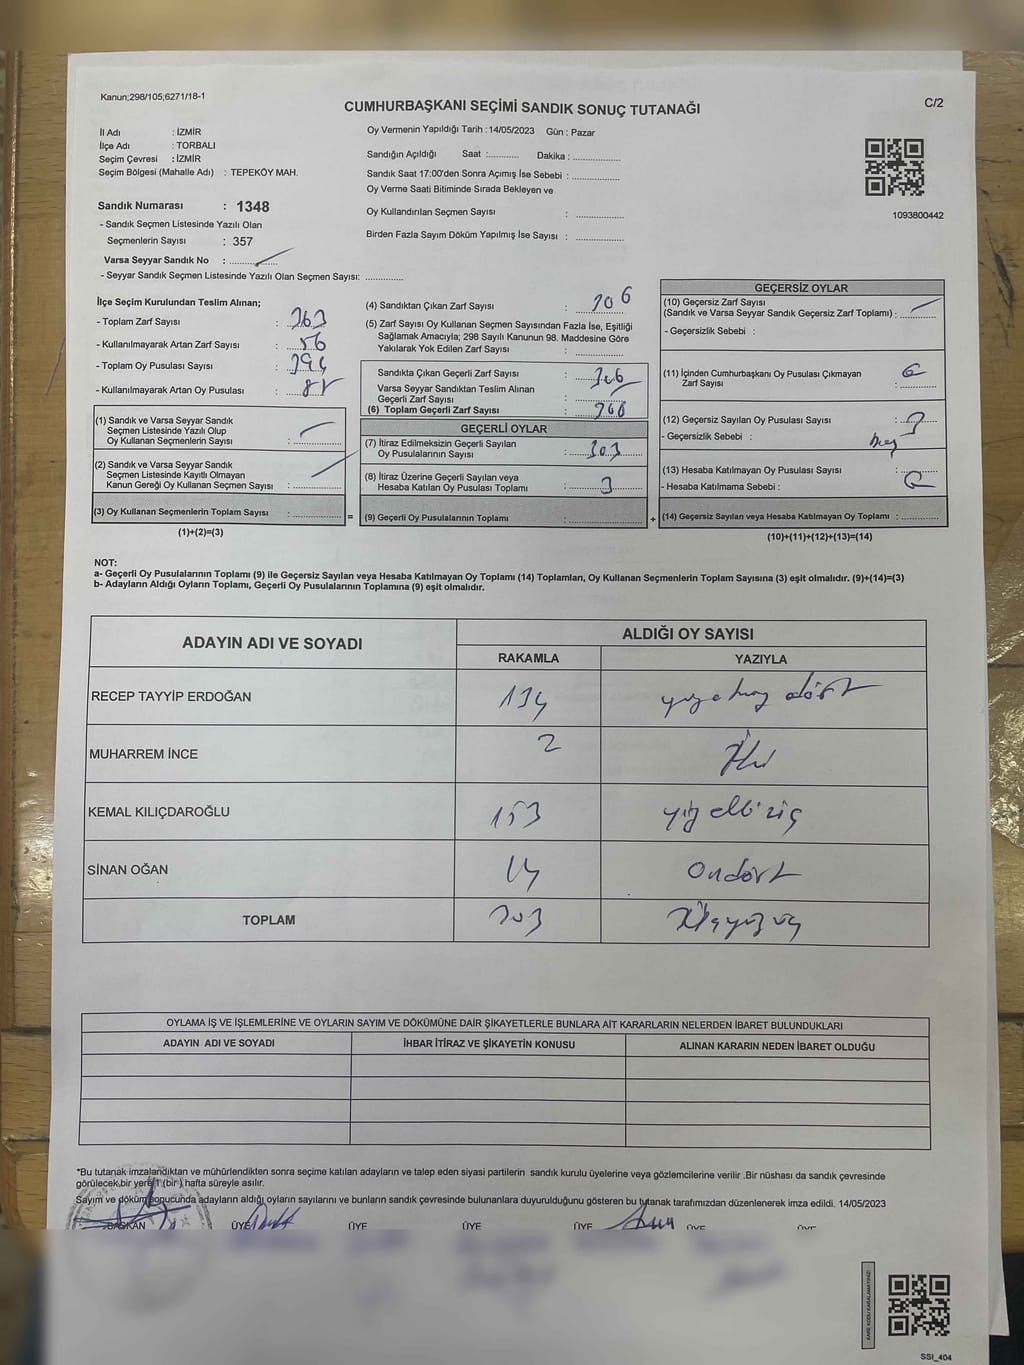 Kanun;298/105;6271/18-1
CUMHURBAŞKANI SEÇİMİ SANDIK SONUÇ TUTANAĞI
C/2
İl Adı : İZMİR
İlçe Adı : TORBALI
Seçim Çevresi : İZMİR
Seçim Bölgesi (Mahalle Adı) : TEPEKÖY MAH.
Oy Vermenin Yapıldığı Tarih :14/05/2023 Gün : Pazar
Sandığın Açıldığı Saat :.......... Dakika : ................
Sandık Saat 17:00'den Sonra Açımış İse Sebebi : ................
Oy Verme Saati Bitiminde Sırada Bekleyen ve
Oy Kullandırılan Seçmen Sayısı : ................
Birden Fazla Sayım Döküm Yapılmış İse Sayısı : ................
1093800442
Sandık Numarası : 1348
- Sandık Seçmen Listesinde Yazılı Olan
Seçmenlerin Sayısı : 357
Varsa Seyyar Sandık No :
- Seyyar Sandık Seçmen Listesinde Yazılı Olan Seçmen Sayısı: .............
İlçe Seçim Kurulundan Teslim Alınan;
- Toplam Zarf Sayısı : 363
- Kullanılmayarak Artan Zarf Sayısı : 56
- Toplam Oy Pusulası Sayısı :
- Kullanılmayarak Artan Oy Pusulası :
(1) Sandık ve Varsa Seyyar Sandık
Seçmen Listesinde Yazılı Olup
Oy Kullanan Seçmenlerin Sayısı :
(2) Sandık ve Varsa Seyyar Sandık
Seçmen Listesinde Kayıtlı Olmayan
Kanun Gereği Oy Kullanan Seçmen Sayısı :
(3) Oy Kullanan Seçmenlerin Toplam Sayısı : ................ =
(1)+(2)=(3)
(4) Sandıktan Çıkan Zarf Sayısı : 306
(5) Zarf Sayısı Oy Kullanan Seçmen Sayısından Fazla İse, Eşitliği
Sağlamak Amacıyla; 298 Sayılı Kanunun 98. Maddesine Göre
Yakılarak Yok Edilen Zarf Sayısı : ................
Sandıkta Çıkan Geçerli Zarf Sayısı : 306
Varsa Seyyar Sandıktan Teslim Alınan
Geçerli Zarf Sayısı :
(6) Toplam Geçerli Zarf Sayısı : 306
GEÇERLİ OYLAR
(7) İtiraz Edilmeksizin Geçerli Sayılan
Oy Pusulalarının Sayısı : 303
(8) İtiraz Üzerine Geçerli Sayılan veya
Hesaba Katılan Oy Pusulası Toplamı : 3
(9) Geçerli Oy Pusulalarının Toplamı : ................ +
GEÇERSİZ OYLAR
(10) Geçersiz Zarf Sayısı
(Sandık ve Varsa Seyyar Sandık Geçersiz Zarf Toplamı) :
- Geçersizlik Sebebi :
(11) İçinden Cumhurbaşkanı Oy Pusulası Çıkmayan
Zarf Sayısı :
(12) Geçersiz Sayılan Oy Pusulası Sayısı : 3
- Geçersizlik Sebebi :
(13) Hesaba Katılmayan Oy Pusulası Sayısı :
- Hesaba Katılmama Sebebi :
(14) Geçersiz Sayılan veya Hesaba Katılmayan Oy Toplamı : .............
(10)+(11)+(12)+(13)=(14)
NOT:
a- Geçerli Oy Pusulalarının Toplamı (9) ile Geçersiz Sayılan veya Hesaba Katılmayan Oy Toplamı (14) Toplamları, Oy Kullanan Seçmenlerin Toplam Sayısına (3) eşit olmalıdır. (9)+(14)=(3)
b- Adayların Aldığı Oyların Toplamı, Geçerli Oy Pusulalarının Toplamına (9) eşit olmalıdır.
ADAYIN ADI VE SOYADI
ALDIĞI OY SAYISI
RAKAMLA YAZIYLA
RECEP TAYYİP ERDOĞAN 134 yüzotuz dört
MUHARREM İNCE 2 İki
KEMAL KILIÇDAROĞLU 153 yüz elli üç
SİNAN OĞAN 14 Ondört
TOPLAM 303 üçyüz üç
OYLAMA İŞ VE İŞLEMLERİNE VE OYLARIN SAYIM VE DÖKÜMÜNE DAİR ŞİKAYETLERLE BUNLARA AİT KARARLARIN NELERDEN İBARET BULUNDUKLARI
ADAYIN ADI VE SOYADI İHBAR İTİRAZ VE ŞİKAYETİN KONUSU ALINAN KARARIN NEDEN İBARET OLDUĞU
*Bu tutanak imzalandıktan ve mühürlendikten sonra seçime katılan adayların ve talep eden siyasi partilerin sandık kurulu üyelerine veya gözlemcilerine verilir .Bir nüshası da sandık çevresinde
görülecek bir yere 1 (bir) hafta süreyle asılır.
Sayım ve döküm sonucunda adayların aldığı oyların sayılarını ve bunların sandık çevresinde bulunanlara duyurulduğunu gösteren bu tutanak tarafımızdan düzenlenerek imza edildi. 14/05/2023
BAŞKAN ÜYE ÜYE ÜYE ÜYE ÜYE ÜYE
KARE KODU KARALAMAYINIZ!
SSI_404